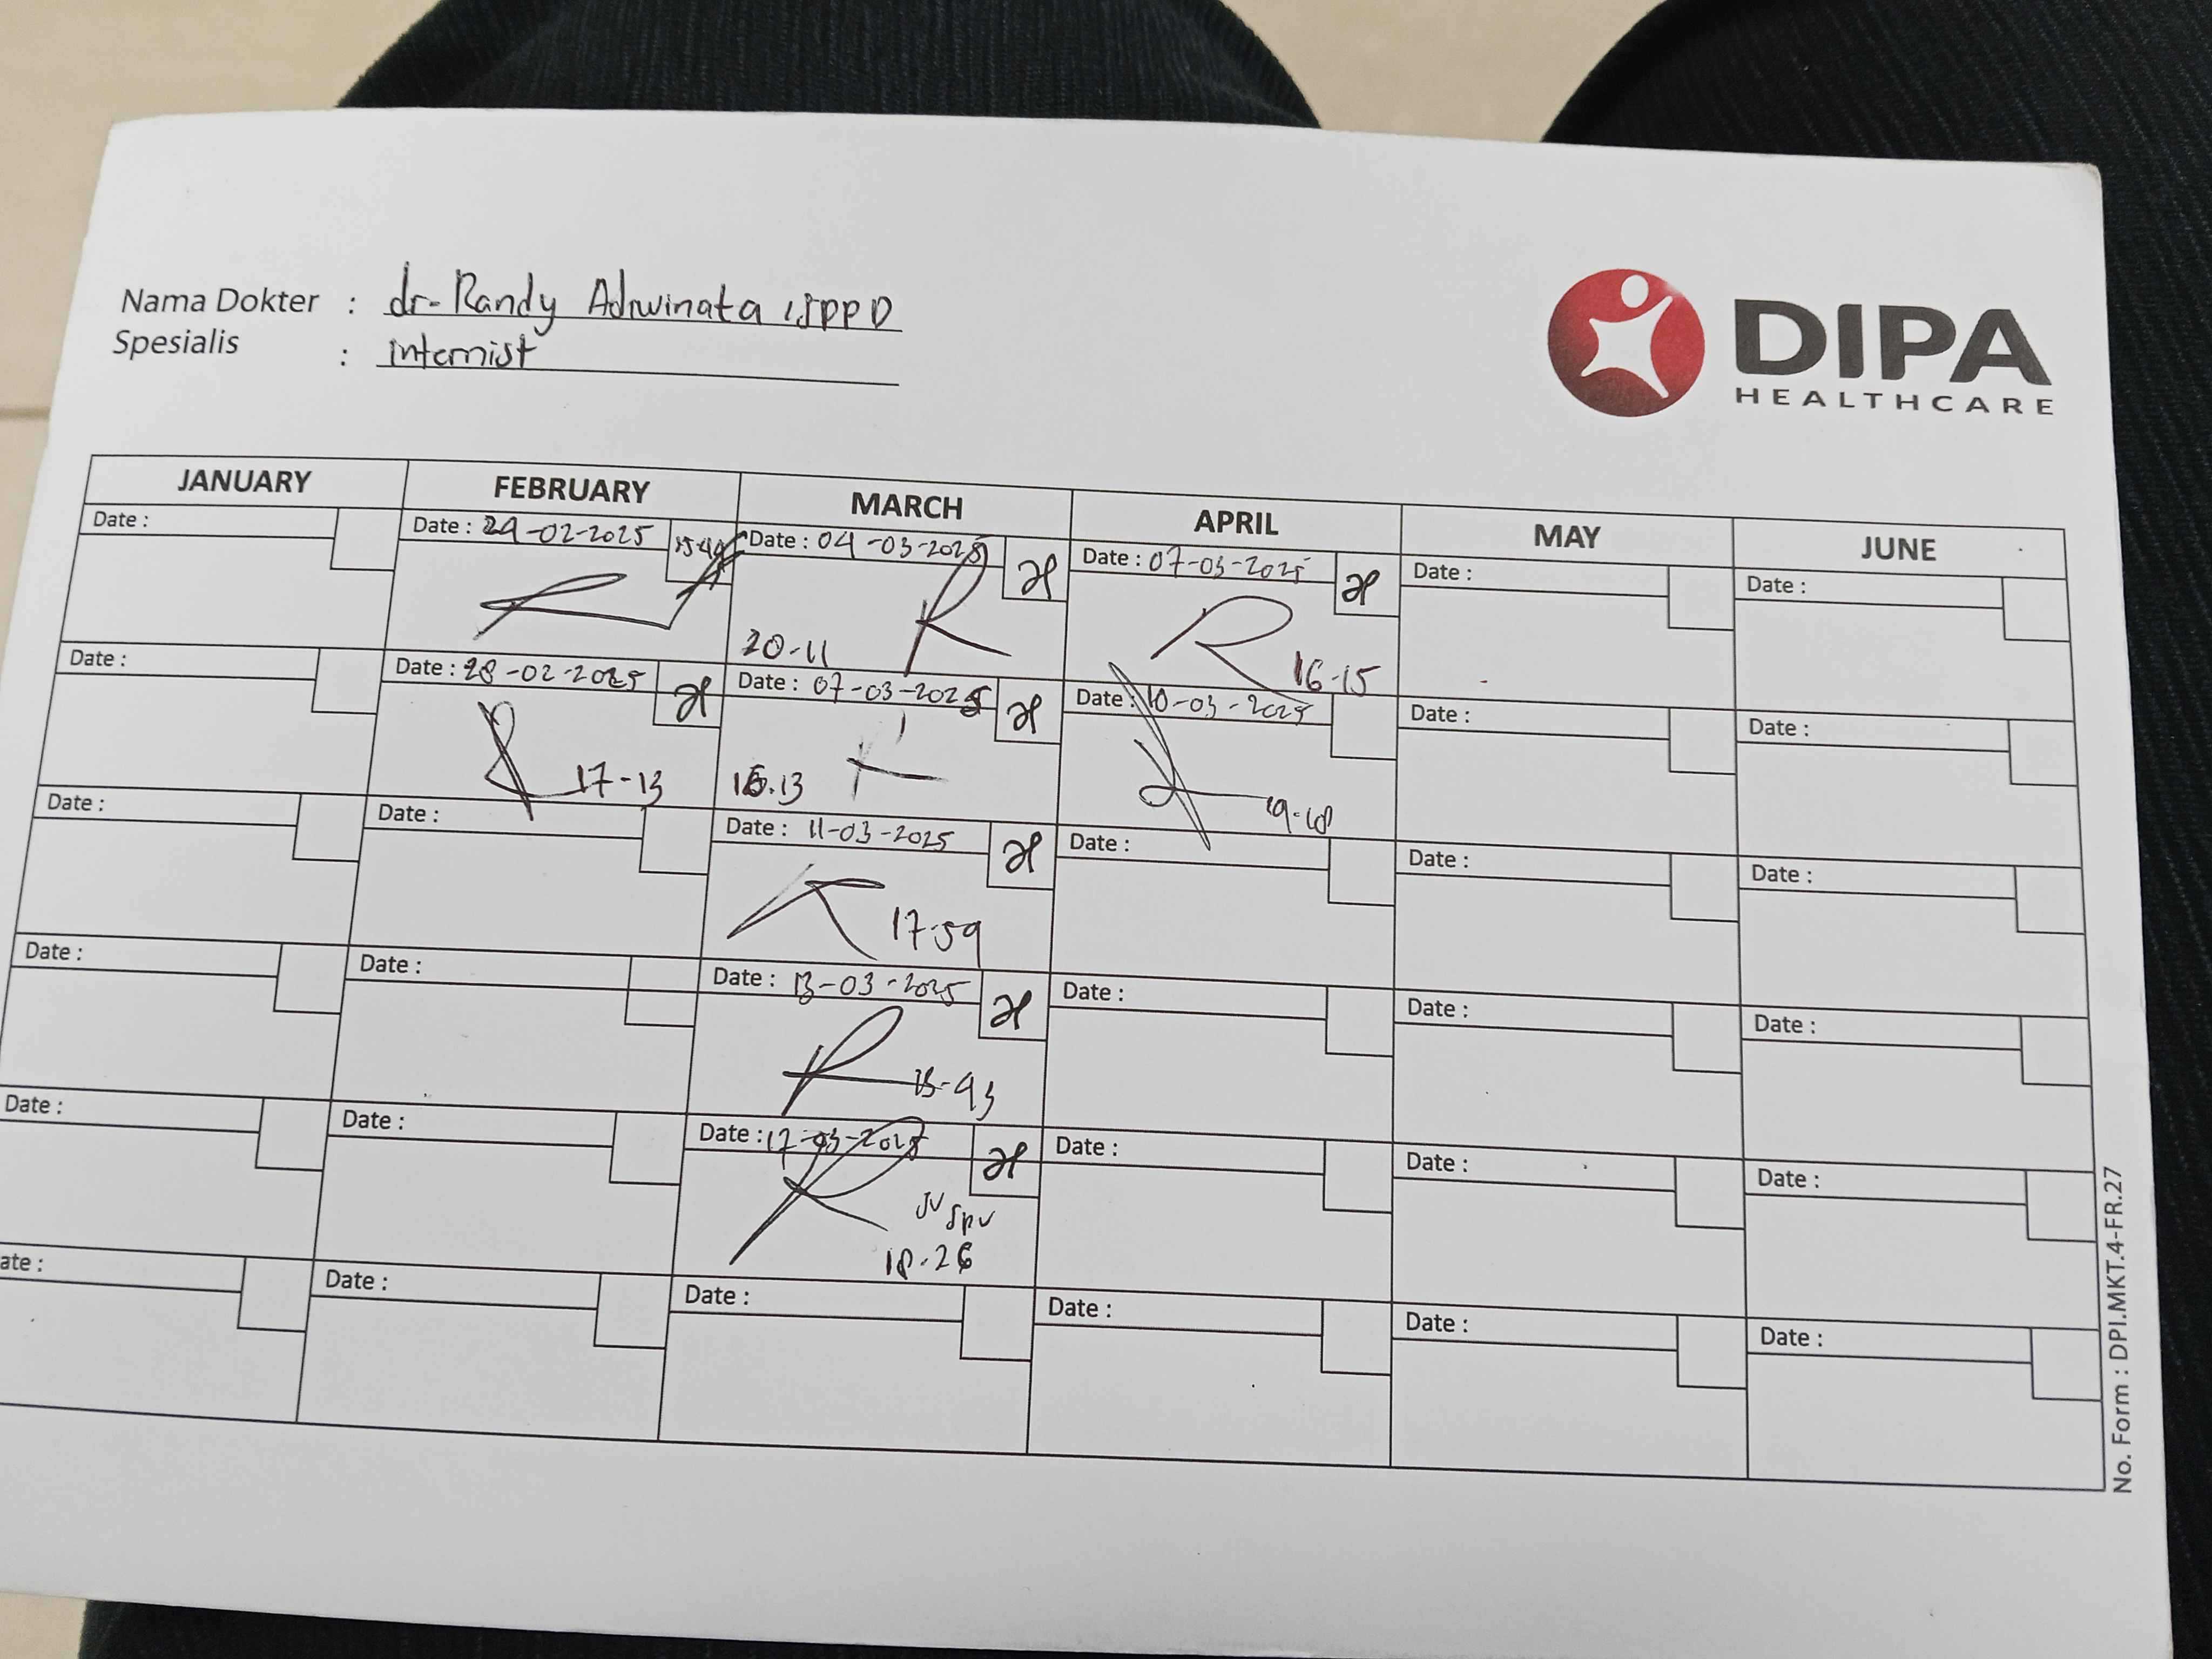 Nama Dokter : dr. Randy Adiwinata, SPPD
Spesialis : Internist
DIPA
HEALTHCARE
JANUARY FEBRUARY MARCH APRIL MAY JUNE
Date : Date : 24-02-2025 Date : 04-03-2025 Date : 07-03-2025 Date : Date :
20-11 16-15
Date : Date : 28-02-2025 Date : 07-03-2025 Date : 10-03-2025 Date : Date :
17-13 16.13
Date : Date : Date : 11-03-2025 Date : Date : Date :
17-59
Date : Date : Date : 13-03-2025 Date : Date : Date :
Date : Date : Date : 17-03-2025 Date : Date : Date :
JV Spv
18-26
ate : Date : Date : Date : Date : Date :
No. Form : DPI.MKT.4-FR.27